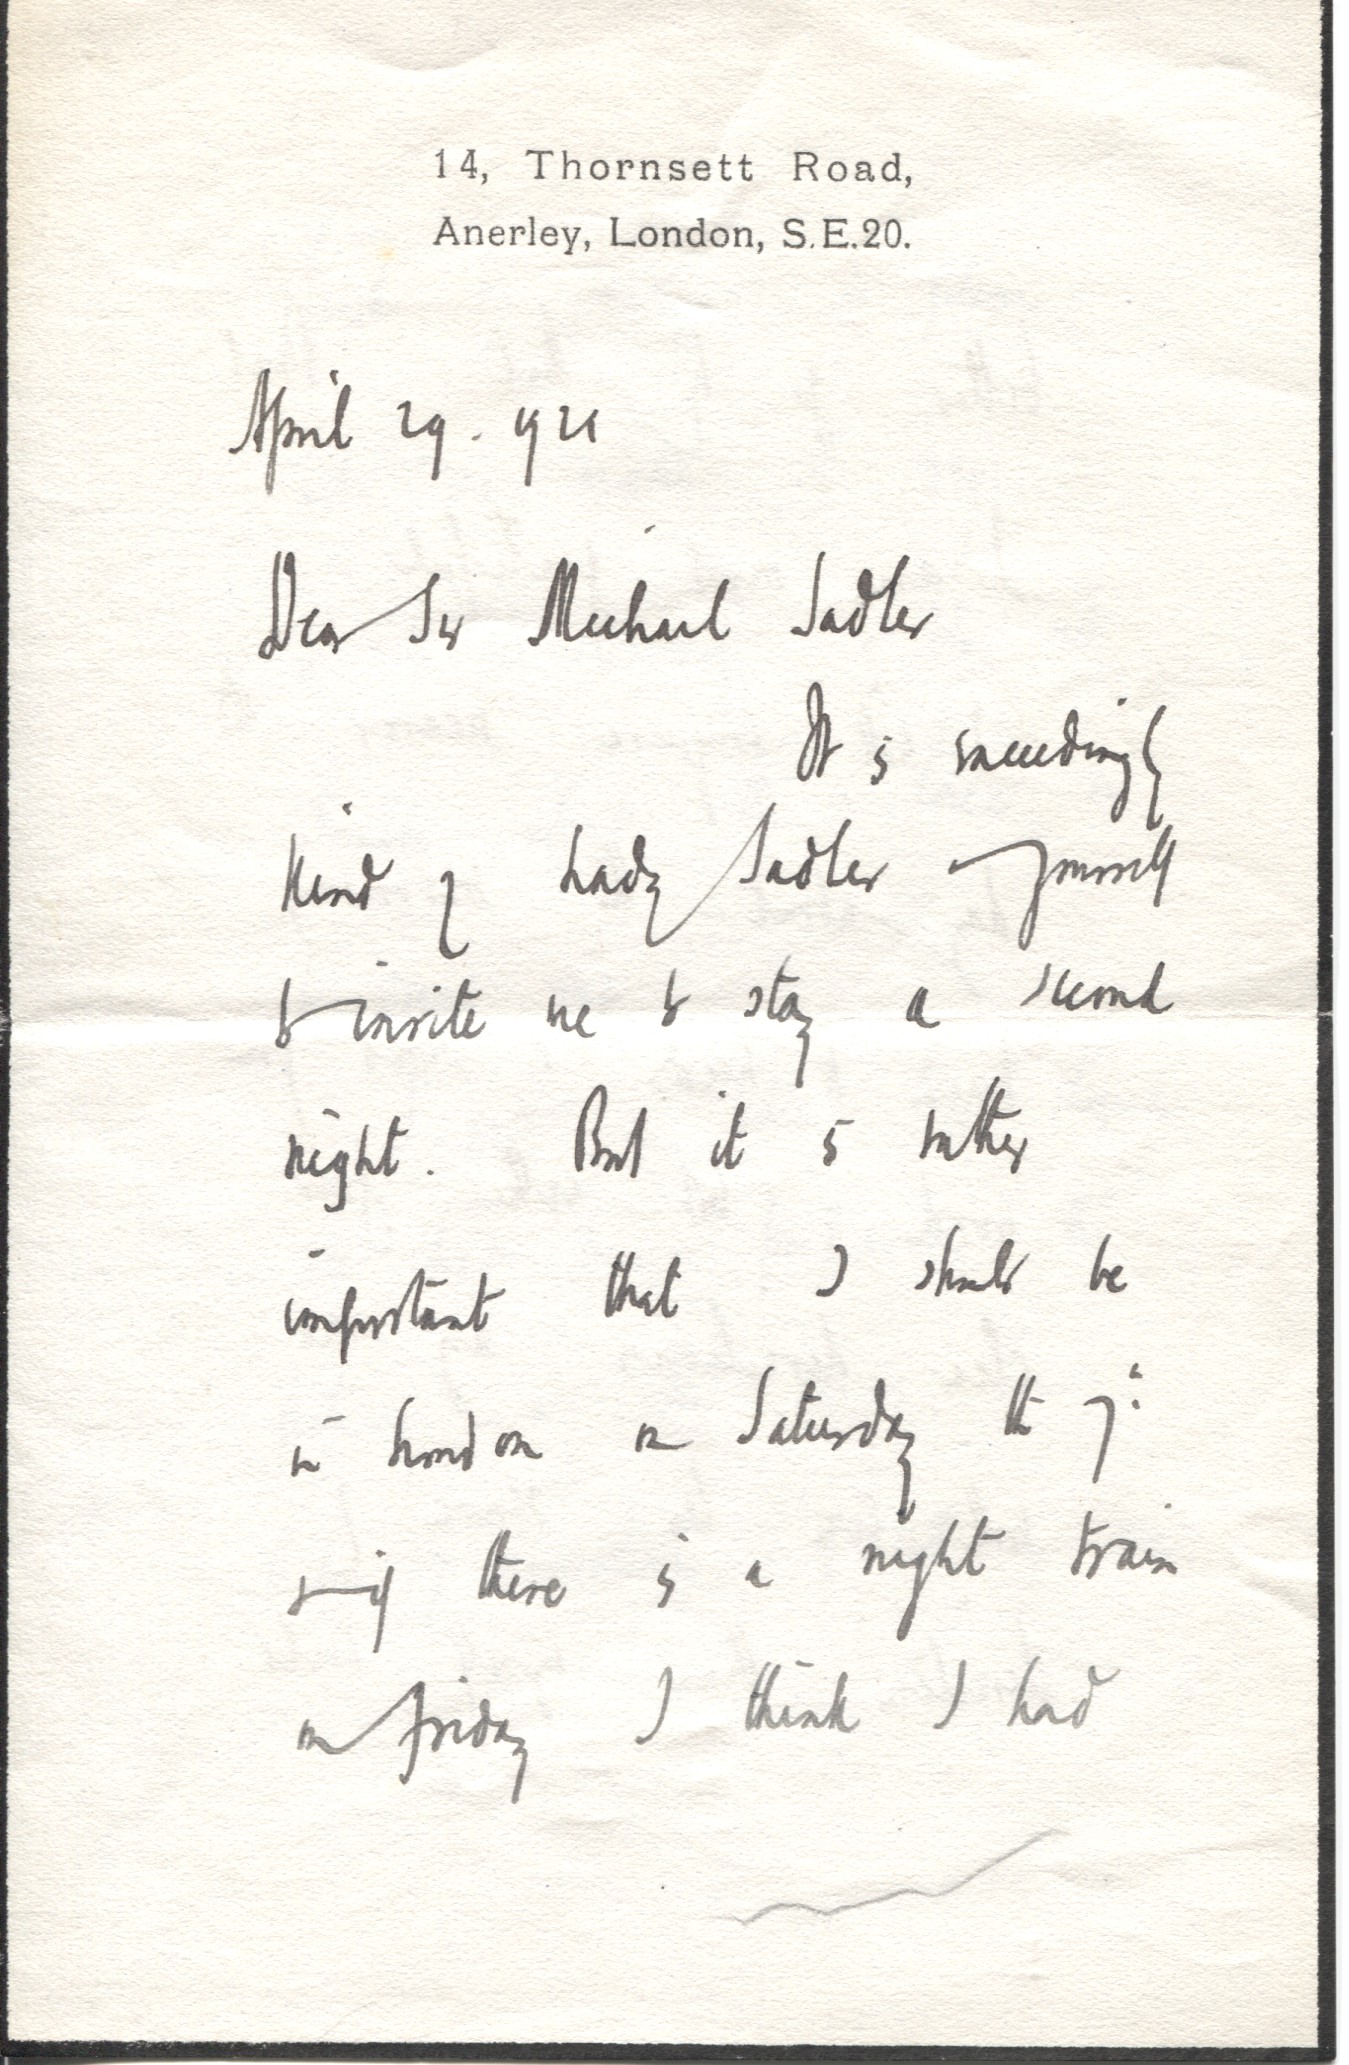 14, Thornsett Road,
Anerley, London, S.E.20.
April 29. 1921
Dear Sir Michael Sadler
It is exceedingly
kind of Lady Sadler & yourself
to invite me to stay a second
night. But it is rather
important that I should be
in London on Saturday the 7th
& if there is a night train
on Friday I think I had